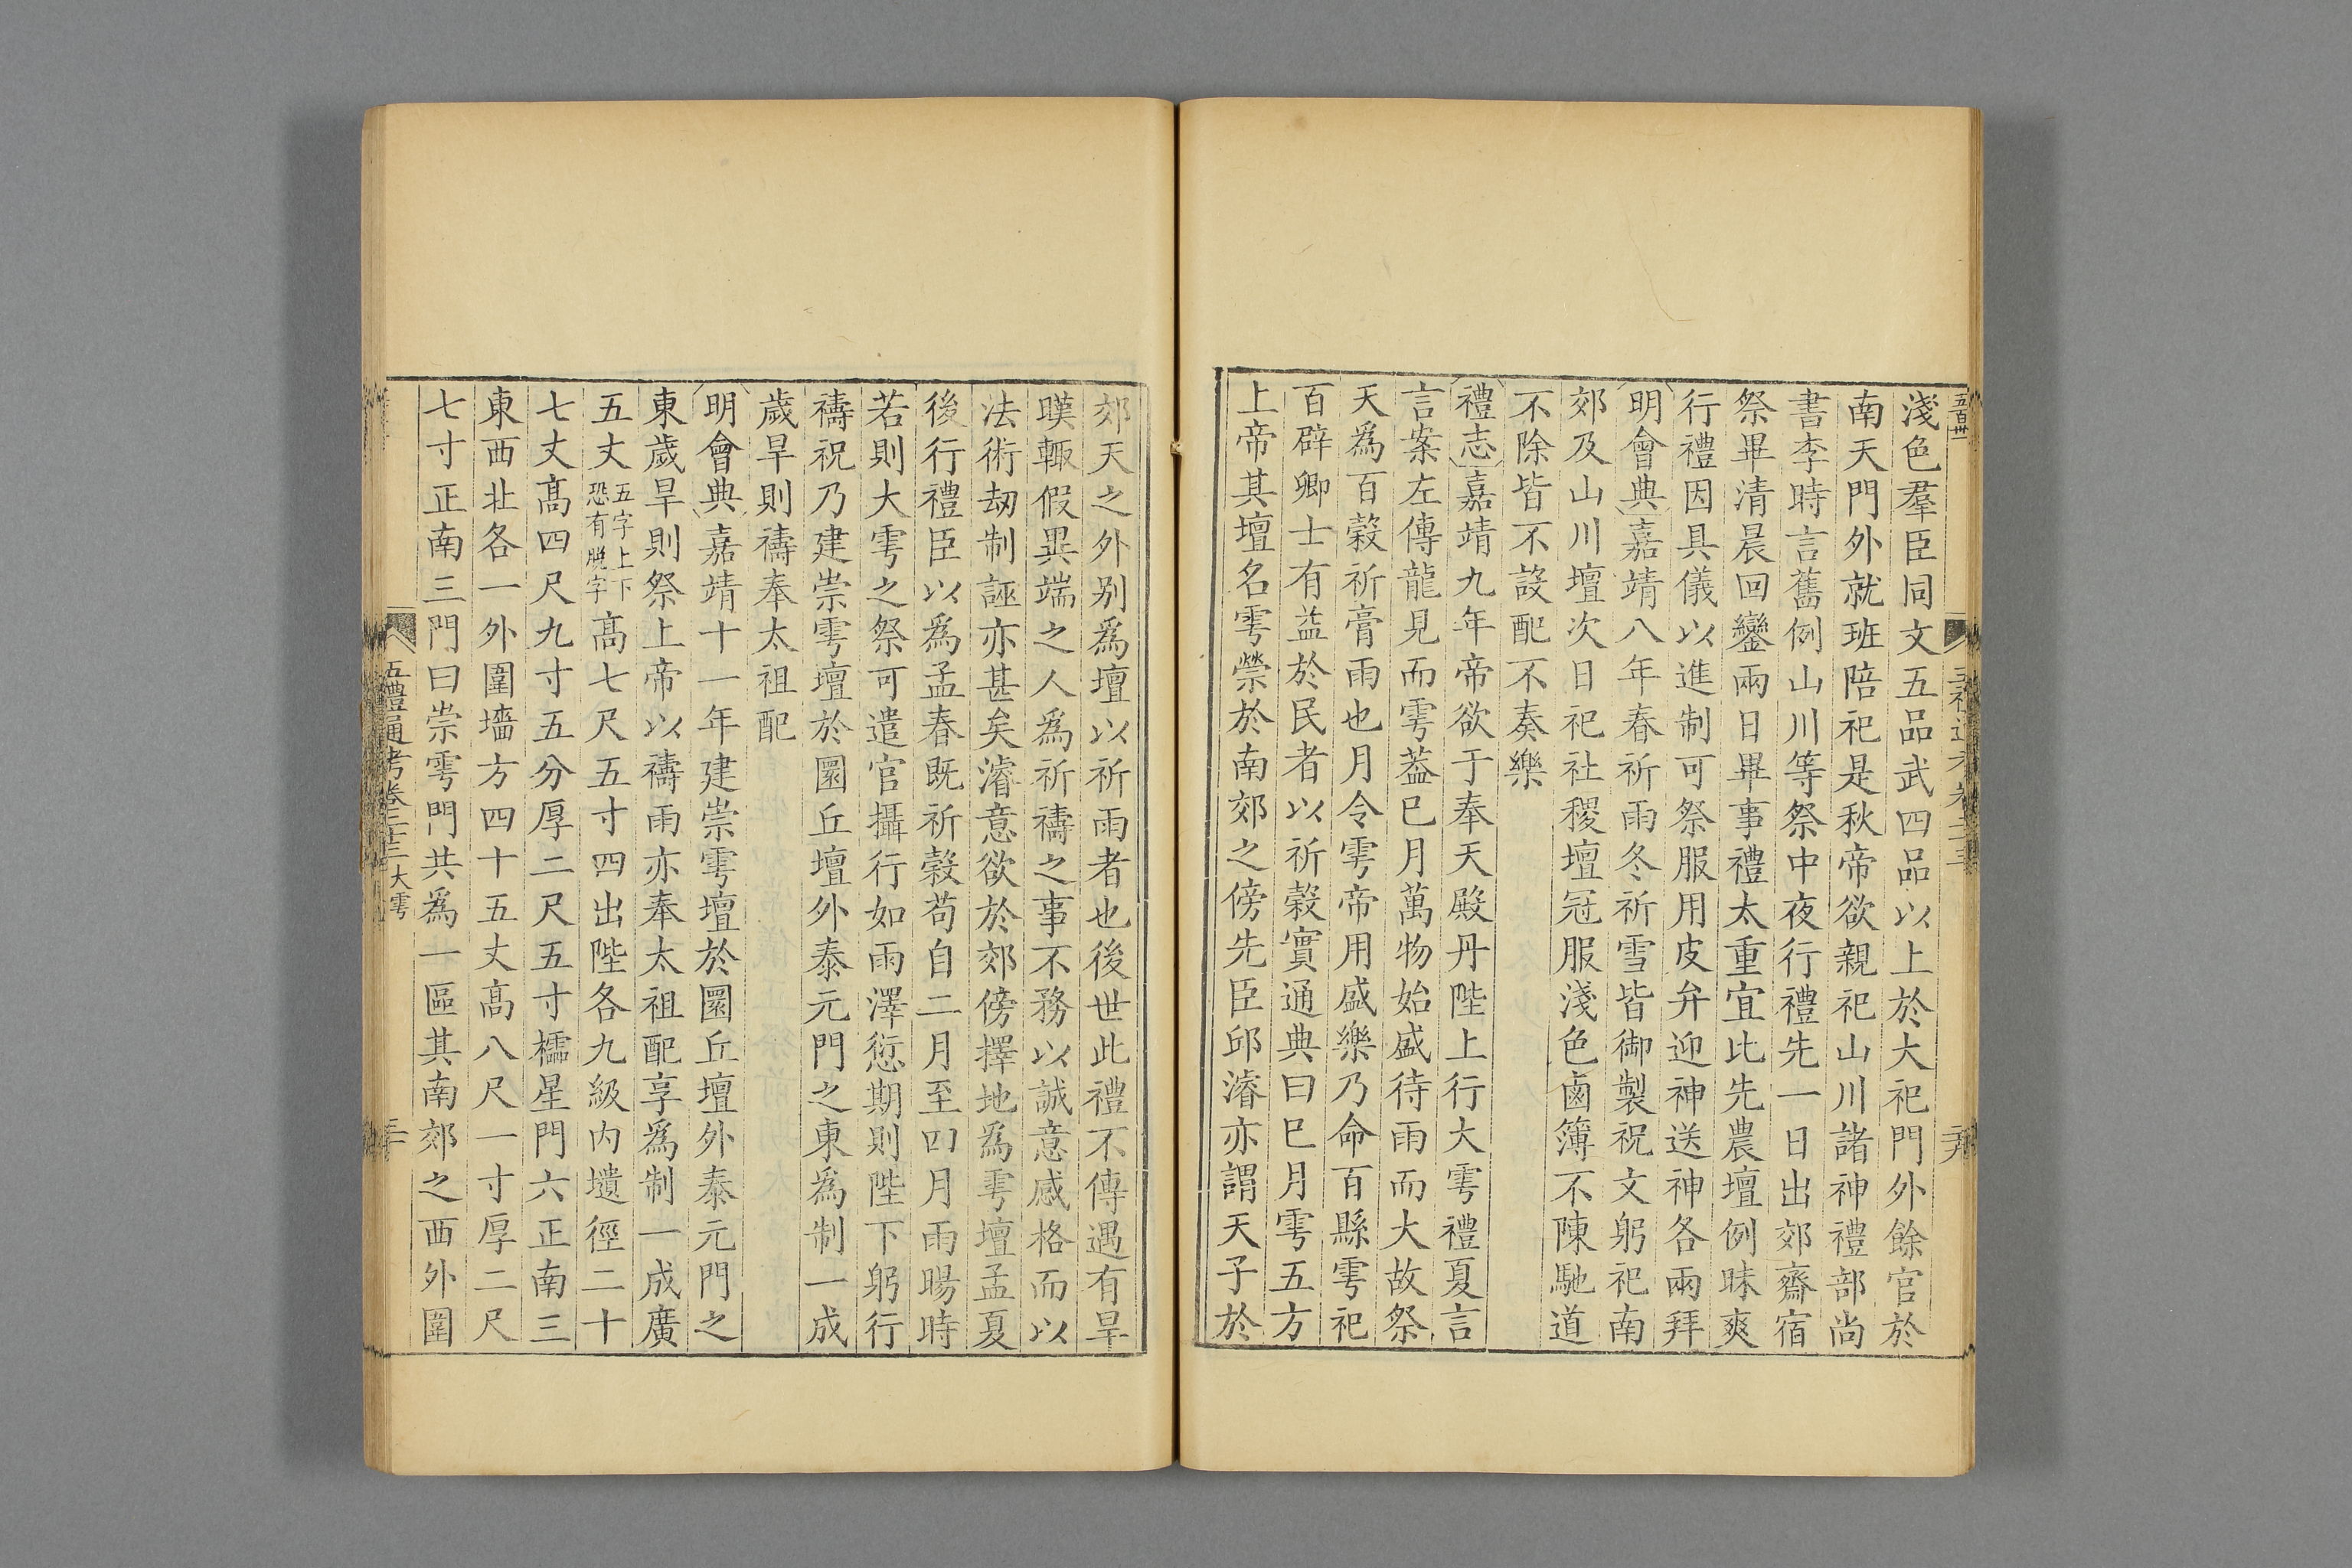 淺色羣臣同文五品武四品以上於大祀門外餘官於
南天門外就班陪祀是秋帝欲親祀山川諸神禮部尚
書李時言舊例山川等祭中夜行禮先一日出郊齋宿
祭畢清晨回鑾兩日畢事禮太重宜比先農壇例昧爽
行禮因具儀以進制可祭服用皮弁迎神送神各兩拜
明會典嘉靖八年春祈雨冬祈雪皆御製祝文躬祀南
郊及山川壇次日祀社稷壇冠服淺色鹵簿不陳馳道
不除皆不設配不奏樂
禮志嘉靖九年帝欲于奉天殿丹陛上行大雩禮夏言
言案左傳龍見而雩葢巳月萬物始盛待雨而大故祭
天爲百穀祈膏雨也月令雩帝用盛樂乃命百縣雩祀
百辟卿士有益於民者以祈穀實通典曰巳月雩五方
上帝其壇名雩禜於南郊之傍先臣邱濬亦謂天子於
郊天之外别爲壇以祈雨者也後世此禮不傳遇有旱
暵輙假異端之人爲祈禱之事不務以誠意感格而以
法術刼制誣亦甚矣濬意欲於郊傍擇地爲雩壇孟夏
後行禮臣以爲孟春既祈穀苟自二月至四月雨暘時
若則大雩之祭可遣官攝行如雨澤愆期則陛下躬行
禱祝乃建崇雩壇於圜丘壇外泰元門之東爲制一成
歲旱則禱奉太祖配
明會典嘉靖十一年建崇雩壇於圜丘壇外泰元門之
東歲旱則祭上帝以禱雨亦奉太祖配享爲制一成廣
五丈五字上下恐有脫字高七尺五寸四出陛各九級内壝徑二十
七丈高四尺九寸五分厚二尺五寸櫺星門六正南三
東西北各一外圍墻方四十五丈高八尺一寸厚二尺
七寸正南三門曰崇雩門共爲一區其南郊之西外圍
五禮通考卷二十三大雩